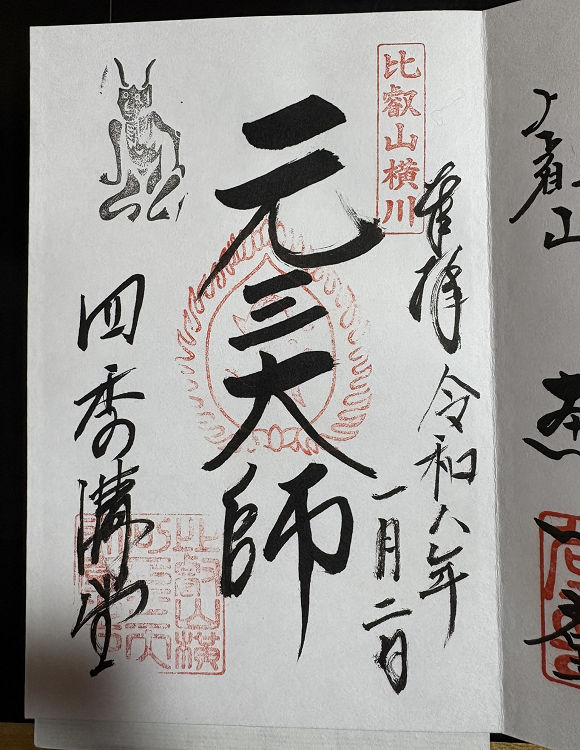 比叡山横川
奉拝
令和八年
一月二日
元三大師
四季講堂
比叡山横